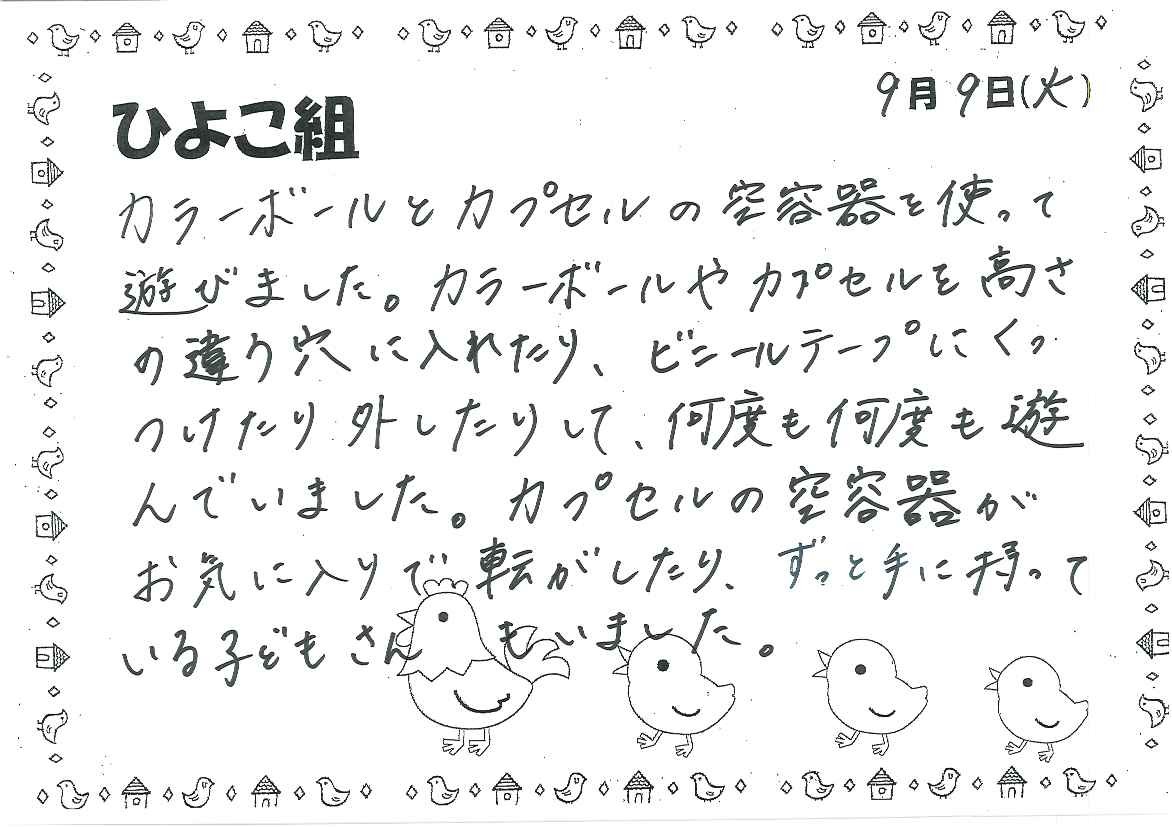 9月9日(火)
ひよこ組
カラーボールとカプセルの空容器を使って
遊びました。カラーボールやカプセルを高さ
の違う穴に入れたり、ビニールテープにくっ
つけたり外したりして、何度も何度も遊
んでいました。カプセルの空容器が
お気に入りで転がしたり、ずっと手に持って
いる子どもさんもいました。